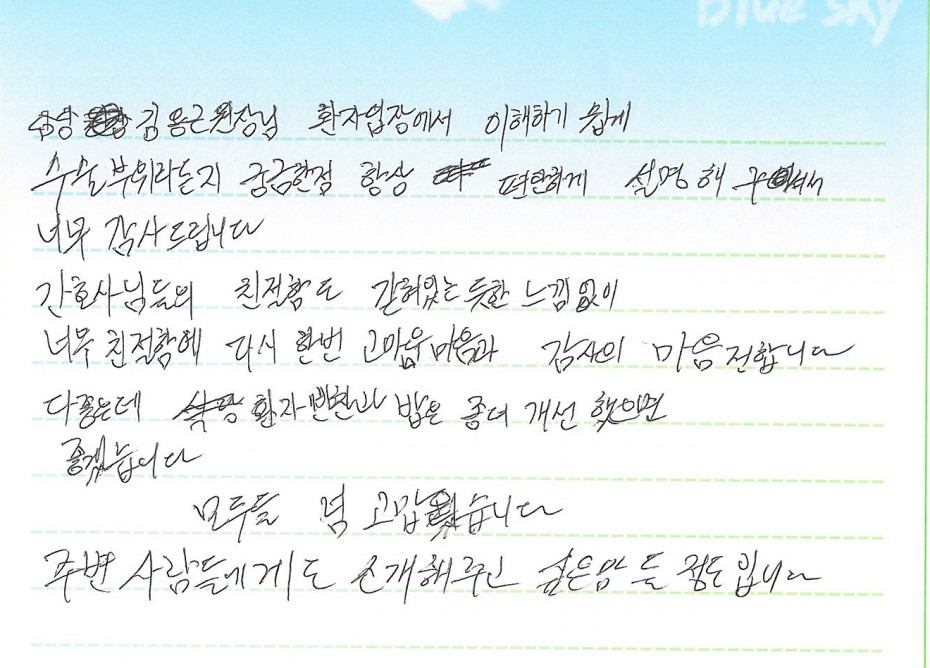 Blue sky
김용근원장님 환자입장에서 이해하기 쉽게
수술부위라든지 궁금한점 항상 편안하게 설명해
너무 감사드립니다
간호사님들의 친절함도 갇혀있는듯한 느낌없이
너무 친절함에 다시 한번 고마움마음과 감사의 마음전합니다
다좋은데 환자반찬과 밥은 좀더 개선 했으면
좋겠습니다
모두들 넘 고맙습니다
주변 사람들에게도 소개해주고 싶은맘 들 정도입니다